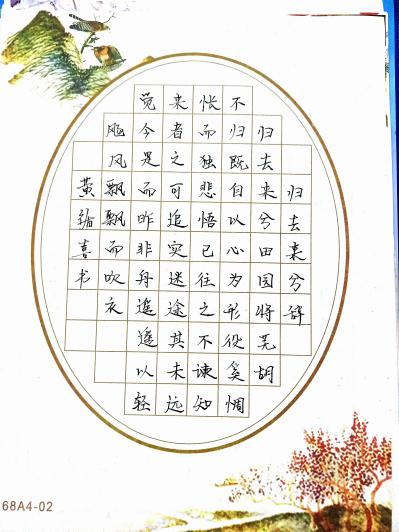 归去来兮辞
归去来兮田园将芜胡
不归既自以心为形役奚惆
怅而独悲悟已往之不谏知
来者之可追实迷途其未远
觉今是而昨非舟遥遥以轻
飏风飘飘而吹衣
黄喜书
68A4-02